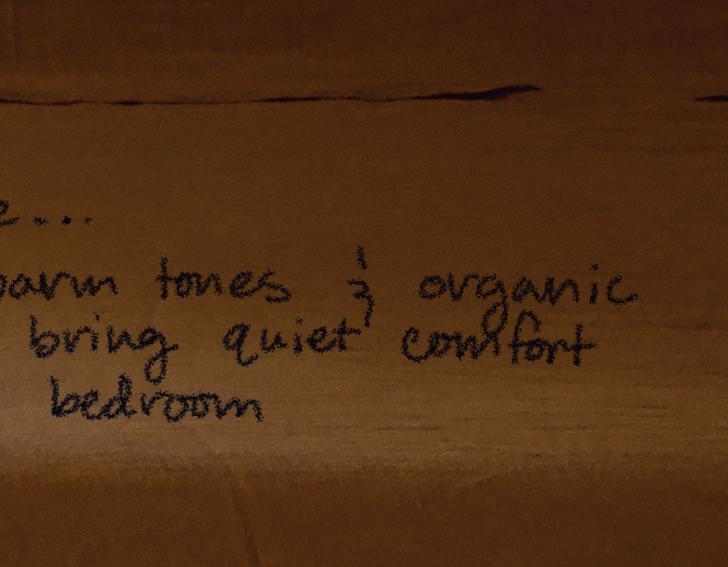 e...
warm tones & organic
bring quiet comfort
bedroom